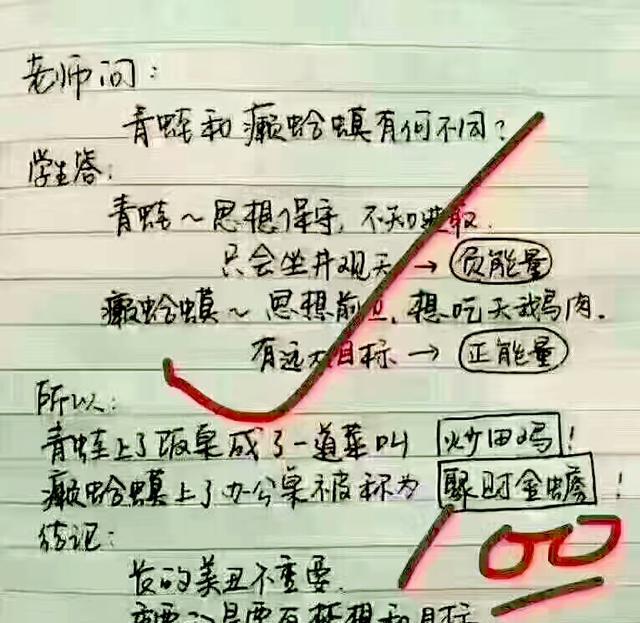 老师问：
青蛙和癞蛤蟆有何不同？
学生答：
青蛙～思想保守，不知进取.
只会坐井观天→负能量
癞蛤蟆～思想前卫，想吃天鹅肉.
有远大目标→正能量
所以：
青蛙上了饭桌成了一道菜叫 炒田鸡！
癞蛤蟆上了办公桌被称为 聚财金蟾！
结论：
长的美丑不重要.
重要的是要有梦想和目标
100